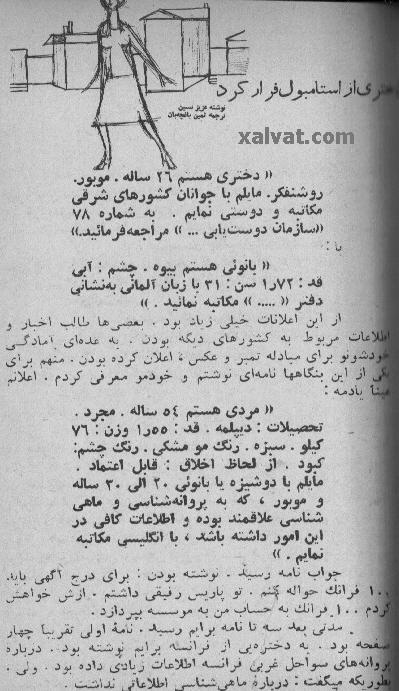 دختری از استامبول فرار کرد
نوشته عزیز نسین
ترجمه ثمین باغچه‌بان
xalvat.com
« دختری هستم ۲۶ ساله . موبور.
روشنفکر. مایلم با جوانان کشورهای شرقی
مکاتبه و دوستی نمایم . به شماره ۷۸
«سازمان دوست‌یابی ... » مراجعه‌فرمائید.»
یا :
« بانوئی هستم بیوه . چشم : آبی
قد : ۱٫۷۲ سن : ۳۱ با زبان آلمانی به‌نشانی
دفتر « ..... » مکاتبه نمائید . »
از این اعلانات خیلی زیاد بود . بعضی‌ها طالب اخبار و
اطلاعات مربوط به کشورهای دیگه بودن . یه عده‌ای آمادگی
خودشونو برای مبادله تمبر و عکس ، اعلان کرده بودن . منهم برای
یکی از این بنگاهها نامه‌ای نوشتم و خودمو معرفی کردم . اعلانم
عیناً یادمه :
« مردی هستم ۵۴ ساله . مجرد .
تحصیلات : دیپلمه . قد : ۱٫۵۵ وزن : ۷۶
کیلو . سبزه . رنگ مو مشکی . رنگ چشم:
کبود . از لحاظ اخلاق : قابل اعتماد .
مایلم با دوشیزه یا بانوئی ۲۰ الی ۳۰ ساله
و موبور ، که به پروانه‌شناسی و ماهی
شناسی علاقمند بوده و اطلاعات کافی در
این امور داشته باشد ، با انگلیسی مکاتبه
نمایم . »
جواب نامه رسید . نوشته بودن : برای درج آگهی باید
۱۰۰ فرانك حواله کنم . تو پاریس رفیقی داشتم . ازش خواهش
کردم ۱۰۰ فرانك به حساب من به موسسه بپردازد .
مدتی بعد سه تا نامه برایم رسید . نامهٔ اولی تقریباً چهار
صفحه بود . یه دختره‌یی از فرانسه برایم نوشته بود . درباره
پروانه‌های سواحل غربی فرانسه اطلاعات زیادی داده بود . ولی .
بطوریکه میگفت : دربارهٔ ماهی‌شناسی اطلاعاتی نداشت .